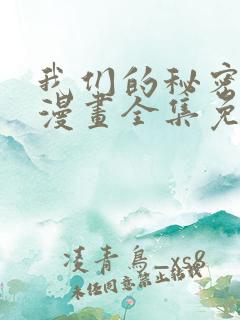 我们的秘密
漫畫全集免
凌青鳥_xs8
未任同意禁止轉載